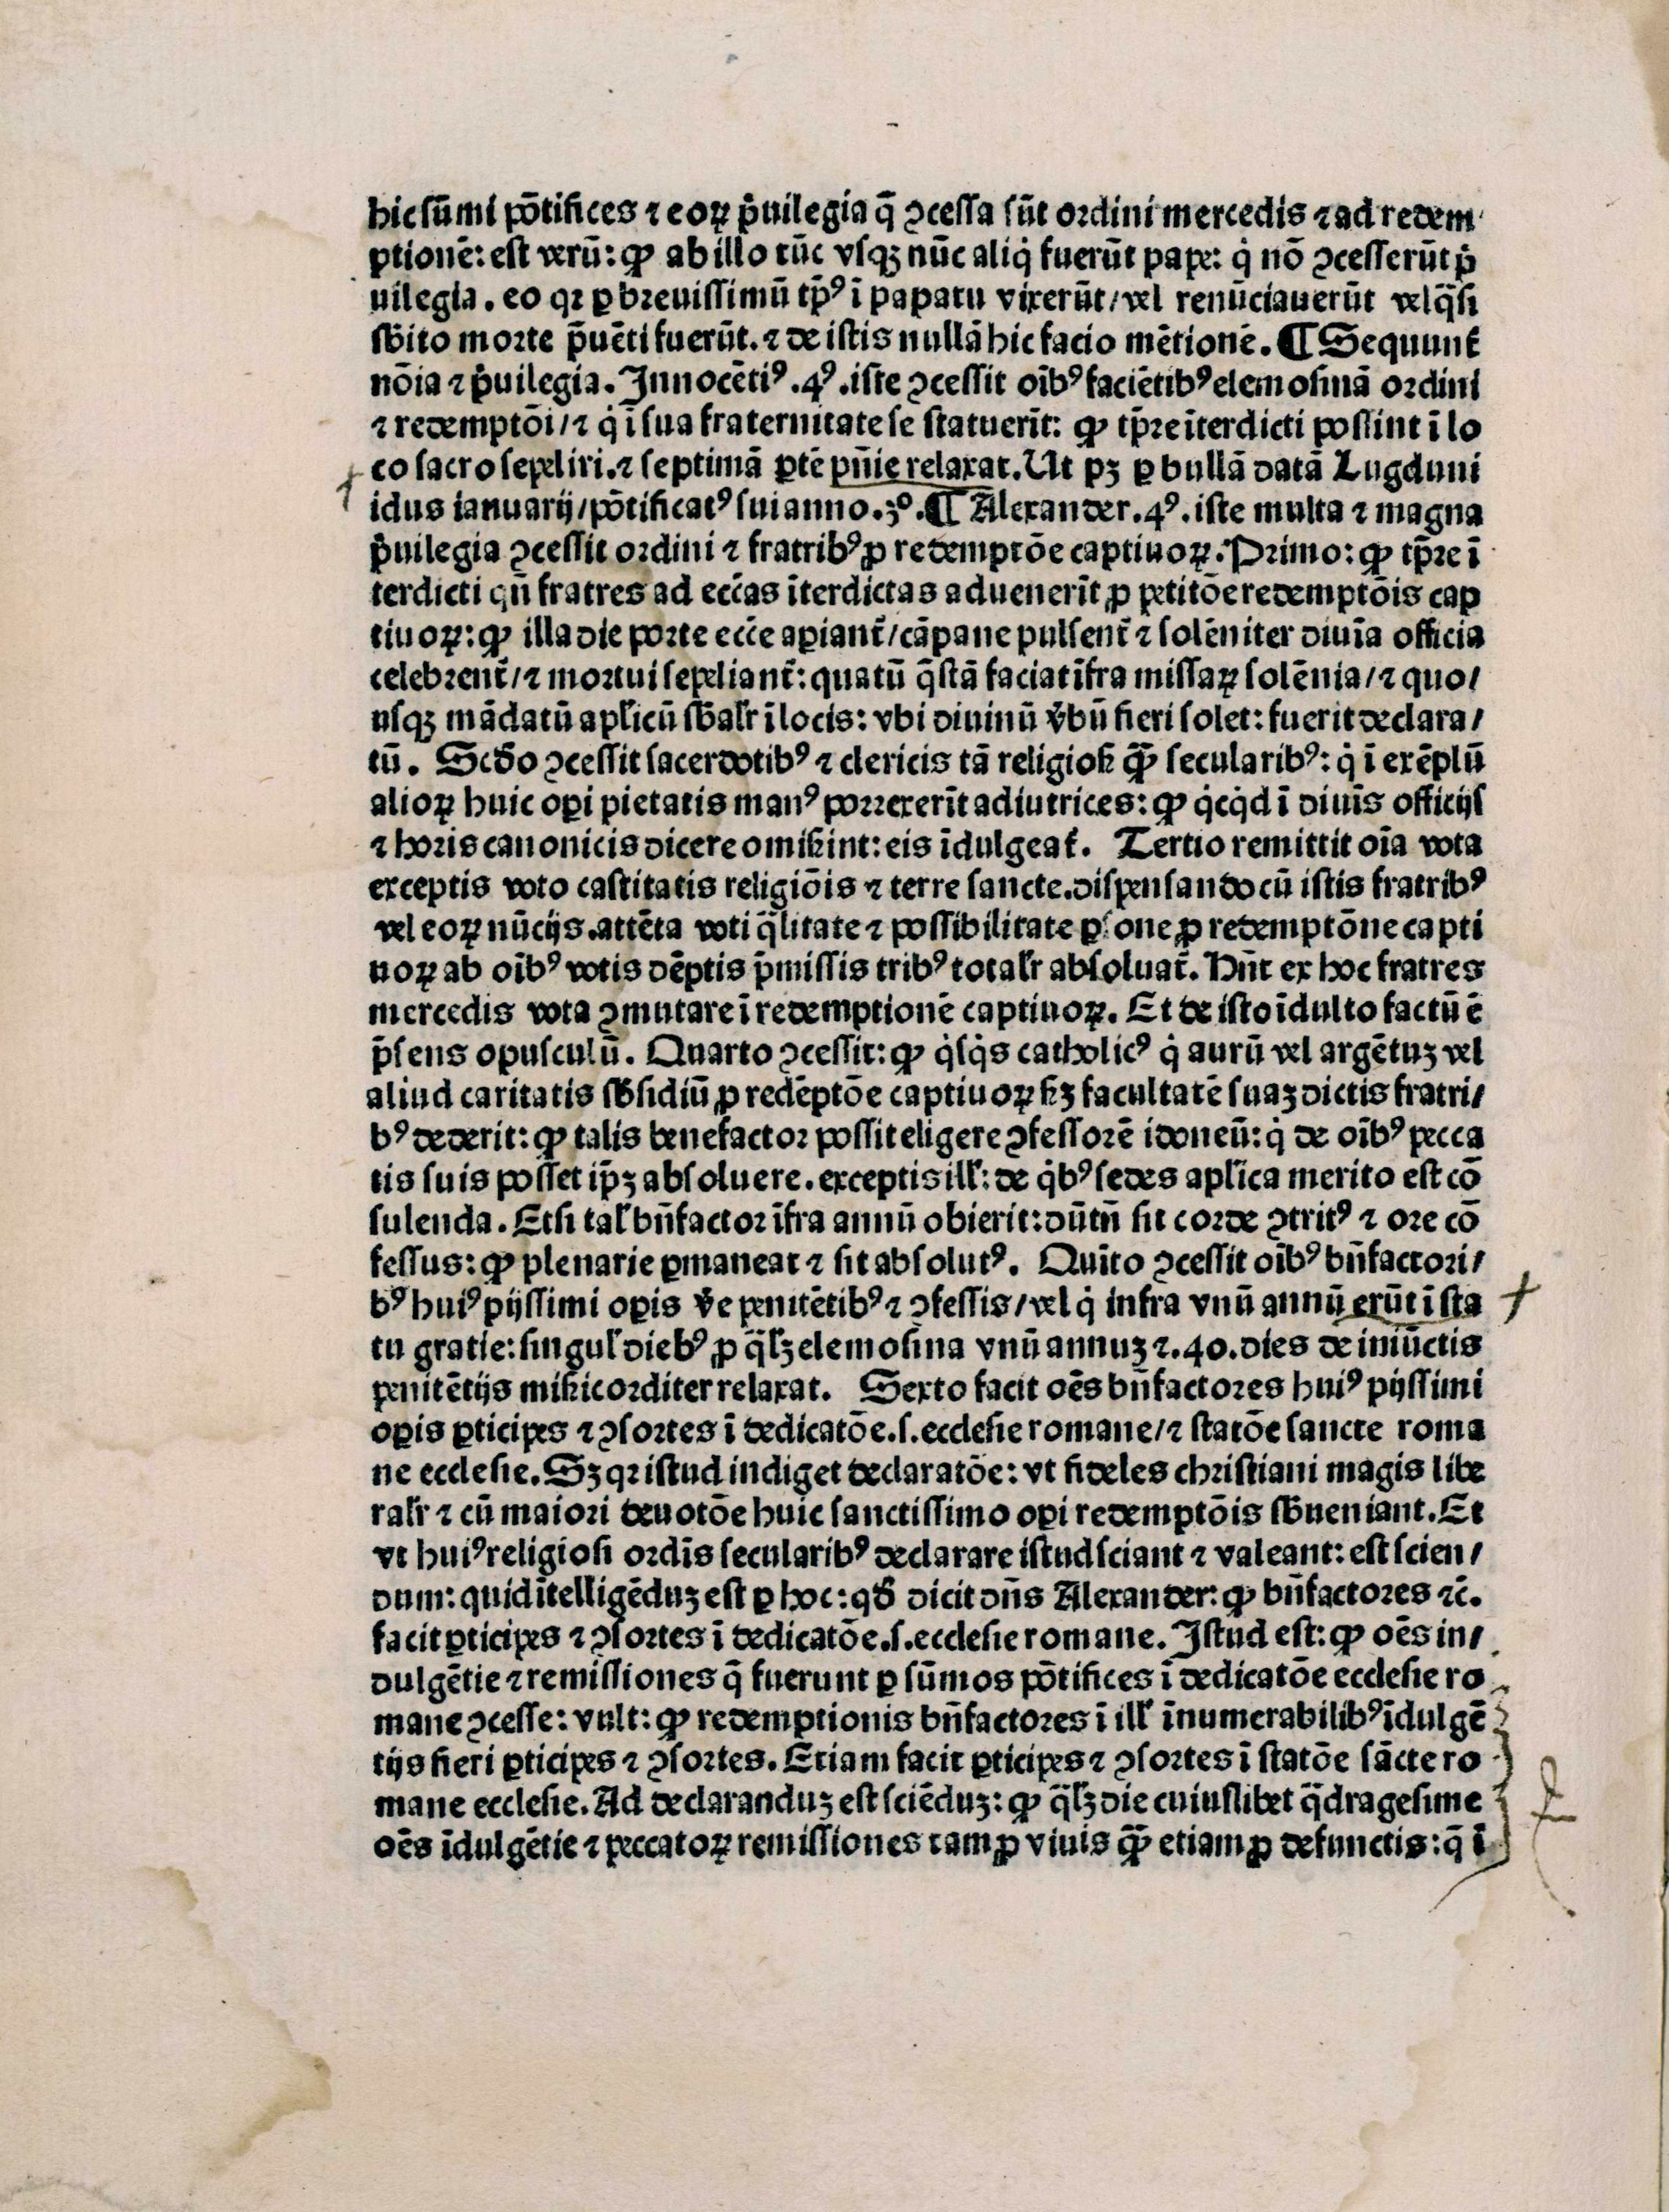 hic sūmi põtifices ⁊ eoꝝ p̄uilegia q̄ ꝯcessa sūt ordini mercedis ⁊ ad redem
ptionē: est verū: ꝙ ab illo tūc vsqꝫ nūc aliq̇ fuerūt pape: q̇ nō ꝯcesserūt p̄
uilegia. eo qꝛ ꝑ breuissimū tp̄ꝰ ī papatu vixerūt/vel renūciauerūt vel q̄si
sb̄ito morte p̄uēti fuerūt. ⁊ de istis nullā hic facio mētionē. ¶ Sequunt̄
nōia ⁊ p̄uilegia. Innocētiꝰ .4ꝰ. iste ꝯcessit oībꝰ faciētibꝰ elemosinā ordini
⁊ redemptōi/⁊ q̇ ī sua fraternitate se statuerīt: ꝙ tp̄re īterdicti possint ī lo
co sacro sepeliri. ⁊ septimā ꝑtē pn̄ie relaxat. Ut pꝫ ꝑ bullā datā Lugduni
idus ianuarij/pōtificatꝰ sui anno. 3º. ¶ Alexander. 4ꝰ. iste multa ⁊ magna
p̄uilegia ꝯcessit ordini ⁊ fratribꝰ ꝓ redemptōe captiuoꝝ. Primo: ꝙ tp̄re ī
terdicti qn̄ fratres ad ecc̄as īterdictas aduenerīt ꝓ petitōe redemptōis cap
tiuoꝝ: ꝙ illa die porte ecc̄e aꝑiant̄/cāpane pulsent̄ ⁊ solēniter diuīa officia
celebrent̄/⁊ mortui sepeliant̄: quatū q̄stā faciat īfra missaꝝ solēnia/⁊ quo/
usqꝫ mādatū apl̄icū sb̄alr̄ ī locis: vbi diuinū v̄bū fieri solet: fuerit declara/
tū. Scd̄o ꝯcessit sacerdotibꝰ ⁊ clericis tā religiosꝭ ꝙ̄ secularibꝰ: q̇ ī exēplū
alioꝝ huic oꝑi pietatis manꝰ porrexerīt adiutrices: ꝙ q̇cq̇d ī diuīs officijs
⁊ horis canonicis dicere omiẜint: eis īdulgeat̄. Tertio remittit oīa vota
exceptis voto castitatis religiōis ⁊ terre sancte. dispensando cū istis fratribꝰ
vel eoꝝ nūcijs. attēta voti q̄litate ⁊ possibilitate ꝑsone ꝓ redemptōne capti
uoꝝ ab oībꝰ votis dēptis p̄missis tribꝰ totalr̄ absoluat̄. Hn̄t ex hoc fratres
mercedis vota ꝯmutare ī redemptionē captiuoꝝ. Et de isto īdulto factū ē
p̄sens opusculū. Quarto ꝯcessit: ꝙ q̇sq̇s catholicꝰ q̇ aurū vel argētuꝫ vel
aliud caritatis sb̄sidiū ꝓ redēptōe captiuoꝝ ẜꝫ facultatē suaꝫ dictis fratri/
bꝰ dederit: ꝙ talis benefactor possit eligere ꝯfessorē idoneū: q̇ de oībꝰ pecca
tis suis posset ip̄ꝫ absoluere. exceptis ill̄: de q̇bꝰ sedes apl̄ica merito est cō
sulenda. Et si tal̄ bn̄factor īfra annū obierit: dūtn̄ sit corde ꝯtritꝰ ⁊ ore cō
fessus: ꝙ plenarie ꝑmaneat ⁊ sit absolutꝰ. Quīto ꝯcessit oībꝰ bn̄factori/
bꝰ huiꝰ pijssimi oꝑis v̄e penitētibꝰ ⁊ ꝯfessis/vel q̇ infra vnū annū erūt ī sta
tu gratie: singul̄ diebꝰ ꝓ q̄lꝫ elemosina vnū annuꝫ ⁊ .40. dies de iniūctis
penitētijs miẜicorditer relaxat. Sexto facit oēs bn̄factores huiꝰ pijssimi
oꝑis ꝑticipes ⁊ ꝯsortes ī dedicatōe. s. ecclesie romane/⁊ statōe sancte roma
ne ecclesie. Sꝫ qꝛ istud indiget declaratōe: vt fideles christiani magis libe
ralr̄ ⁊ cū maiori deuotōe huic sanctissimo oꝑi redemptōis sb̄ueniant. Et
vt huiꝰ religiosi ordīs secularibꝰ declarare istud sciant ⁊ valeant: est scien/
dum: quid ītelligēduꝫ est ꝑ hoc: qd̄ dicit dn̄s Alexander: ꝙ bn̄factores ⁊c̄.
facit ꝑticipes ⁊ ꝯsortes ī dedicatōe. s. ecclesie romane. Istud est: ꝙ oēs in/
dulgētie ⁊ remissiones q̄ fuerunt ꝑ sūmos pōtifices ī dedicatōe ecclesie ro
mane ꝯcesse: vult: ꝙ redemptionis bn̄factores ī ill̄ īnumerabilibꝰ īdulgē
tijs fieri ꝑticipes ⁊ ꝯsortes. Etiam facit ꝑticipes ⁊ ꝯsortes ī statōe sācte ro
mane ecclesie. Ad declaranduꝫ est sciēduꝫ: ꝙ q̄lꝫ die cuiuslibet q̄dragesime
oēs īdulgētie ⁊ peccatoꝝ remissiones tam ꝓ viuis ꝙ̄ etiam ꝓ defunctis: q̄ ī